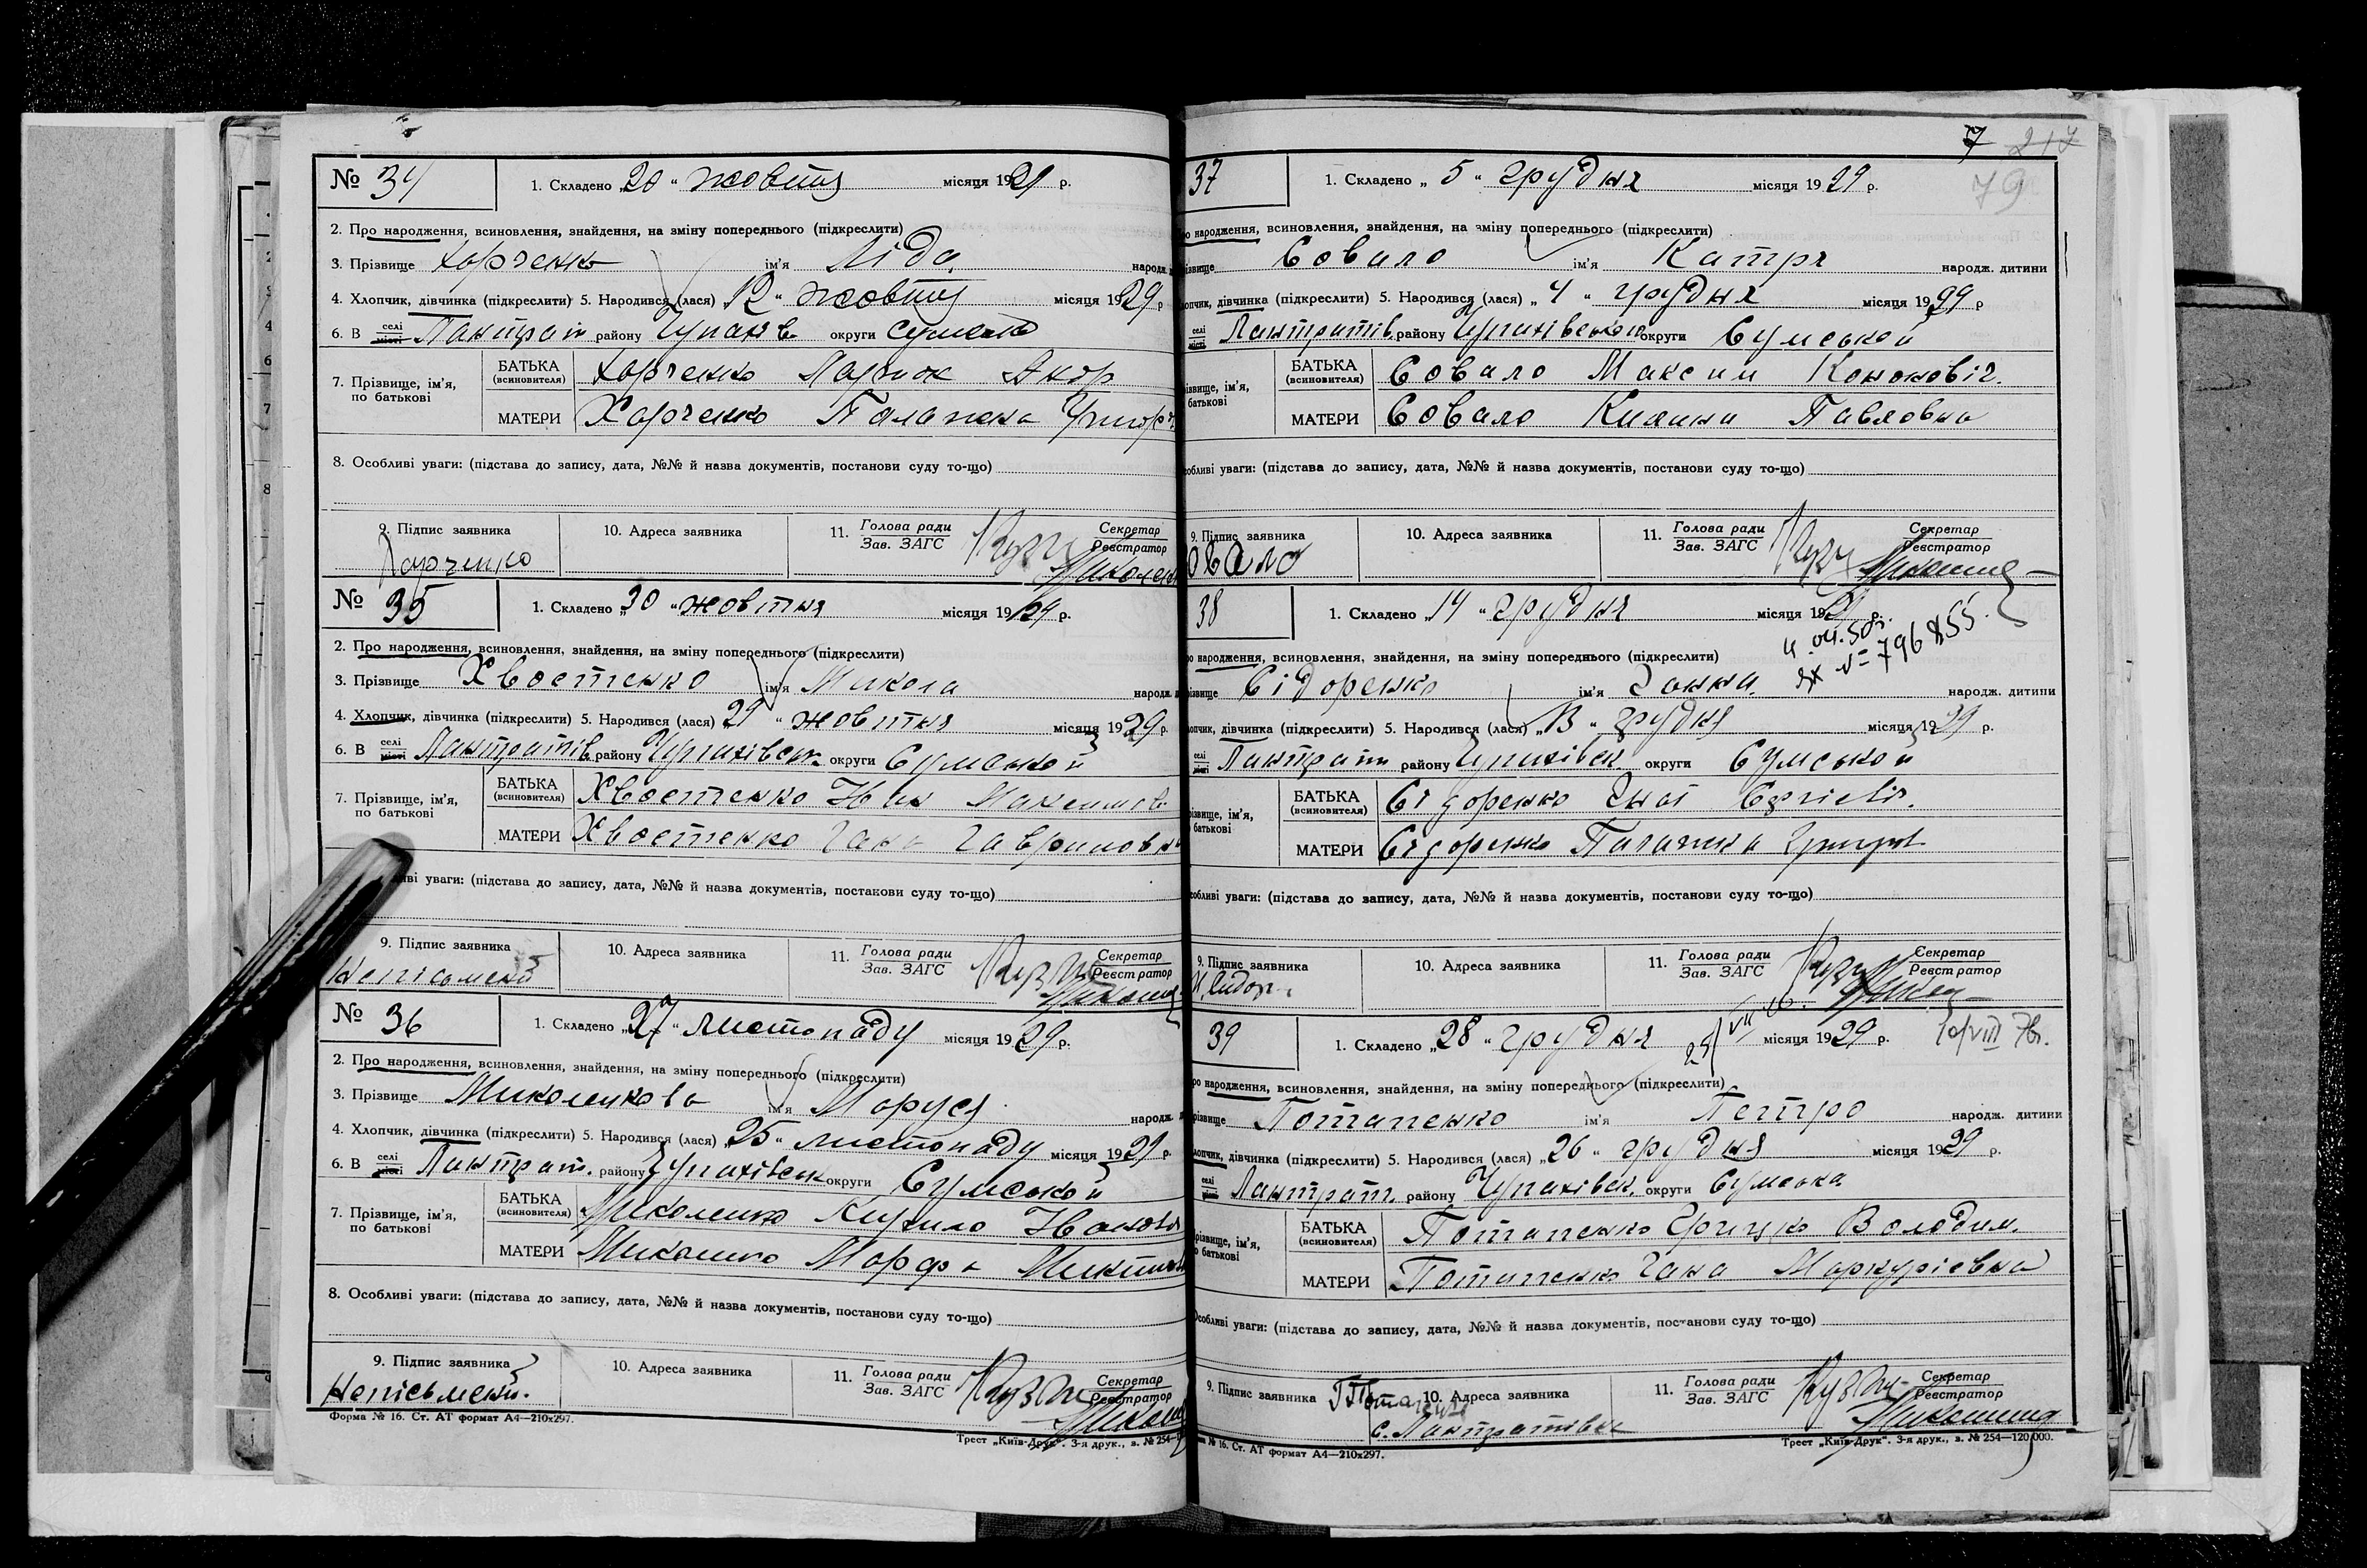 № 34 1. Складено „20“ жовтня місяця 1929 р.
2. Про народження, всиновлення, знайдення, на зміну попереднього (підкреслити)
3. Прізвище Харченко ім'я Ліда народж.
4. Хлопчик, дівчинка (підкреслити) 5. Народився (лася) 12 “ жовтня місяця 1929 р
6. В селі місті Пантрат району Чупахів. округи Сумська
7. Прізвище, ім'я, по батькові БАТЬКА (всиновителя) Харченко
МАТЕРИ Харченко Палажка Григор
8. Особливі уваги: (підстава до запису, дата, №№ й назва документів, постанови суду то-що)
9. Підпис заявника 10. Адреса заявника 11. Голова ради Зав. ЗАГС Секретар Реєстратор
Харченко
№ 35 1. Складено „30“ жовтня місяця 1929 р.
2. Про народження, всиновлення, знайдення, на зміну попереднього (підкреслити)
3. Прізвище Хвостенко ім'я Микола народж.
4. Хлопчик, дівчинка (підкреслити) 5. Народився (лася) 29 “ жовтня місяця 1929 р.
6. В селі місті Пантратів. району Чупахівськ. округи Сумської
7. Прізвище, ім'я, по батькові БАТЬКА (всиновителя) Хвостенко Іван
МАТЕРИ Хвостенко Гана Гавриловна
иві уваги: (підстава до запису, дата, №№ й назва документів, постанови суду то-що)
9. Підпис заявника 10. Адреса заявника 11. Голова ради Зав. ЗАГС Секретар Реєстратор
Неписьмений
№ 36 1. Складено „27“ листопаду місяця 1929 р.
2. Про народження, всиновлення, знайдення, на зміну попереднього (підкреслити)
3. Прізвище Миколенкова ім'я Маруся народж.
4. Хлопчик, дівчинка (підкреслити) 5. Народився (лася) „25“ листопаду місяця 1929 р.
6. В селі місті Пантрат. району Чупахівськ округи Сумської
7. Прізвище, ім'я, по батькові БАТЬКА (всиновителя) Миколенко Кирило Іванов
МАТЕРИ Миколенко Марфа
8. Особливі уваги: (підстава до запису, дата, №№ й назва документів, постанови суду то-що)
9. Підпис заявника 10. Адреса заявника 11. Голова ради Зав. ЗАГС Секретар Реєстратор
Неписьмений.
Форма № 16. Ст. АТ формат А4—210х297.
Трест „Київ-Друк“. 3-я друк., з. № 254—
7 217
79
37 1. Складено „5“ грудня місяця 1929 р.
о народження, всиновлення, знайдення, на зміну попереднього (підкреслити)
ізвище Совало ім'я Катря народж. дитини
опчик, дівчинка (підкреслити) 5. Народився (лася) „4“ грудня місяця 1929 р
селі місті Пантратів. району Чупахівського округи Сумської
ізвище, ім'я, батькові БАТЬКА (всиновителя) Совало Максим Кононовіч.
МАТЕРИ Совало Килина Павловна
обливі уваги: (підстава до запису, дата, №№ й назва документів, постанови суду то-що)
9. Підпис заявника 10. Адреса заявника 11. Голова ради Зав. ЗАГС Секретар Реєстратор
овало
38 1. Складено „14“ грудня місяця 1929 р.
4.04.50р.
№ 796855
о народження, всиновлення, знайдення, на зміну попереднього (підкреслити)
різвище Сідоренко ім'я Ганна народж. дитини
опчик, дівчинка (підкреслити) 5. Народився (лася) „13“ грудня місяця 1929 р.
селі місті Пантрат району Чупахівськ. округи Сумської
різвище, ім'я, батькові БАТЬКА (всиновителя) Сідоренко
МАТЕРИ Сідоренко Палажка Григор
собливі уваги: (підстава до запису, дата, №№ й назва документів, постанови суду то-що)
9. Підпис заявника 10. Адреса заявника 11. Голова ради Зав. ЗАГС Секретар Реєстратор
39 1. Складено „28“ грудня місяця 1929 р.
ро народження, всиновлення, знайдення, на зміну попереднього (підкреслити)
різвище Потапенко ім'я Петро народж. дитини
лопчик, дівчинка (підкреслити) 5. Народився (лася) „26“ грудня місяця 1929 р.
селі місті Пантрат. району Чупахівськ. округи Сумська
різвище, ім'я, о батькові БАТЬКА (всиновителя) Потапенко Грицко Володим.
МАТЕРИ Потапенко Гана Меркуріевна
Особливі уваги: (підстава до запису, дата, №№ й назва документів, постанови суду то-що)
9. Підпис заявника 10. Адреса заявника 11. Голова ради Зав. ЗАГС Секретар Реєстратор
с. Пантратівка
№ 16. Ст. АТ формат А4—210х297.
Трест „Київ-Друк“. 3-я друк., з. № 254—120,000.